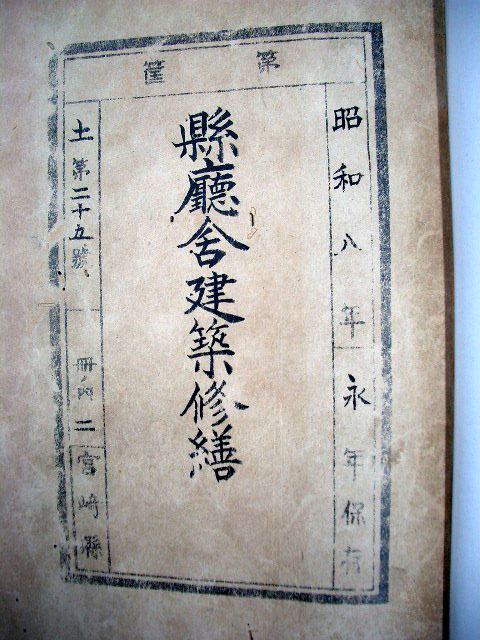 第 筐
昭和八年 永年保存
縣廳舍建築修繕
土第二十五號 冊ノ内二 宮崎縣